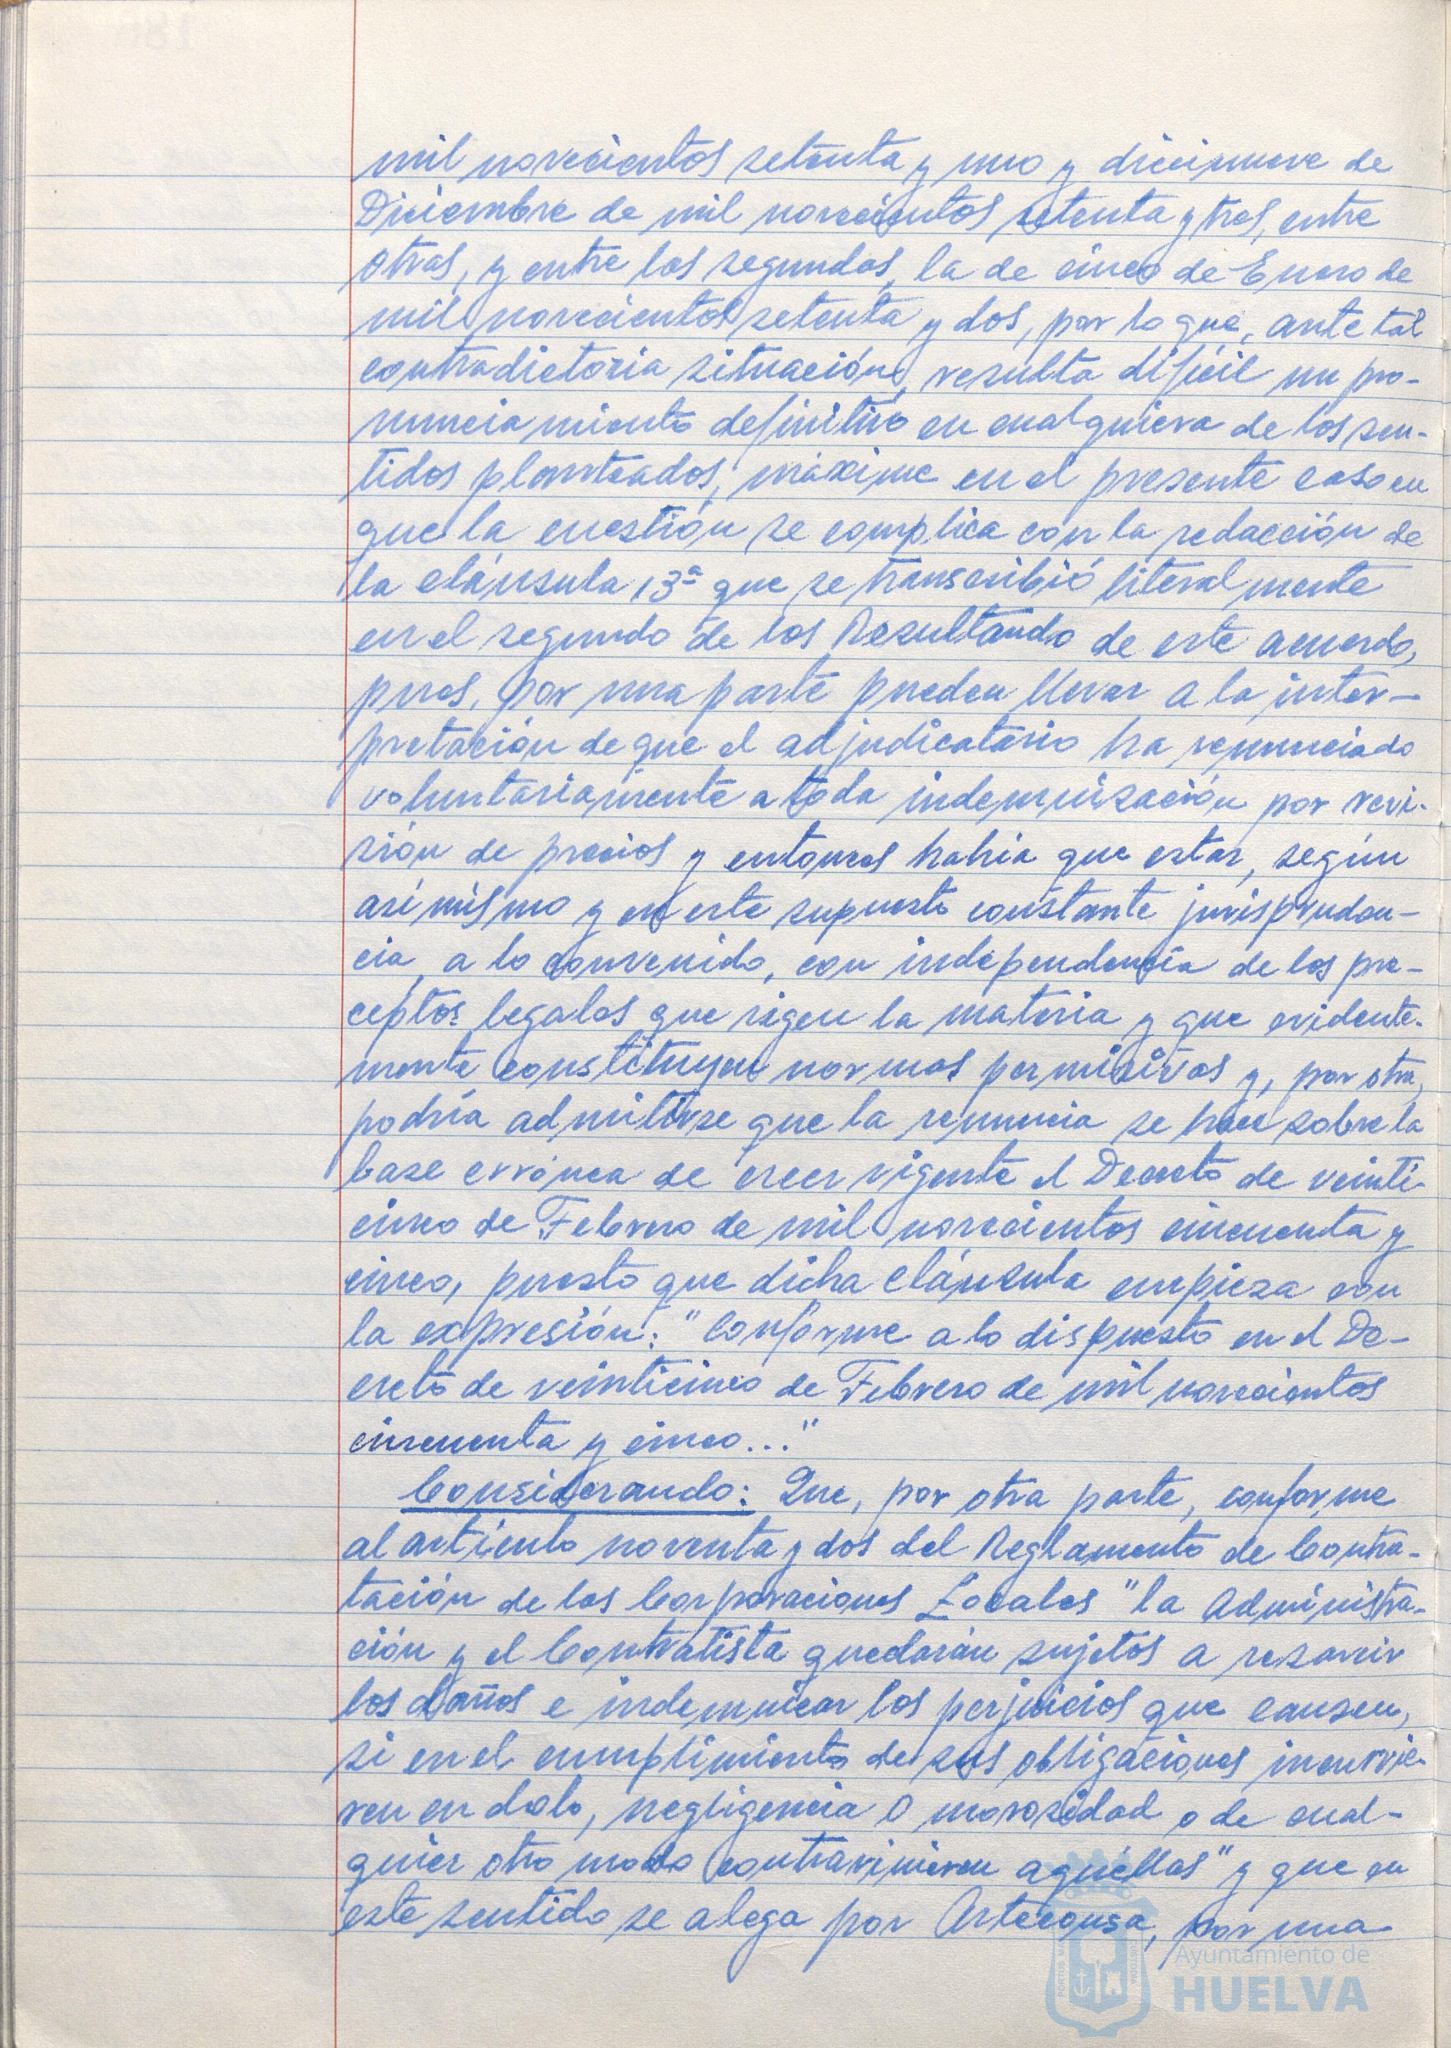 mil novecientos setenta y uno y diecinueve de
Diciembre de mil novecientos setenta y tres, entre
otras, y entre los segundos, la de cinco de Enero de
mil novecientos setenta y dos, por lo que, ante tal
contradictoria situación, resulta difícil un pro-
nunciamiento definitivo en cualquiera de los sen-
tidos planteados, máxime en el presente caso en
que la cuestión se complica con la redacción de
la cláusula 13ª que se transcribió literalmente
en el segundo de los Resultando de este acuerdo,
pues, por una parte pueden llevar a la inter-
pretación de que el adjudicatario ha renunciado
voluntariamente a toda indemnización por revi-
sión de precios y entonces habría que estar, según
asímismo y en este supuesto constante jurispruden-
cia, a lo convenido, con independencia de los pre-
ceptos legales que rigen la materia y que evidente-
mente constituyen normas permisivas y, por otra,
podría admitirse que la renuncia se hace sobre la
base errónea de creer vigente el Decreto de veinti-
cinco de Febrero de mil novecientos cincuenta y
cinco, puesto que dicha cláusula empieza con
la expresión: "Conforme a lo dispuesto en el De-
creto de veinticinco de Febrero de mil novecientos
cincuenta y cinco..."
Considerando: Que, por otra parte, conforme
al artículo noventa y dos del Reglamento de Contra-
tación de las Corporaciones Locales "la Administra-
ción y el Contratista quedarán sujetos a resarcir
los daños e indemnizar los perjuicios que causen,
si en el cumplimiento de sus obligaciones incurrie-
ren en dolo, negligencia o morosidad o de cual-
quier otro modo contravinieren aquéllas" y que en
este sentido se alega por Arteconsa, por una
Ayuntamiento de
HUELVA